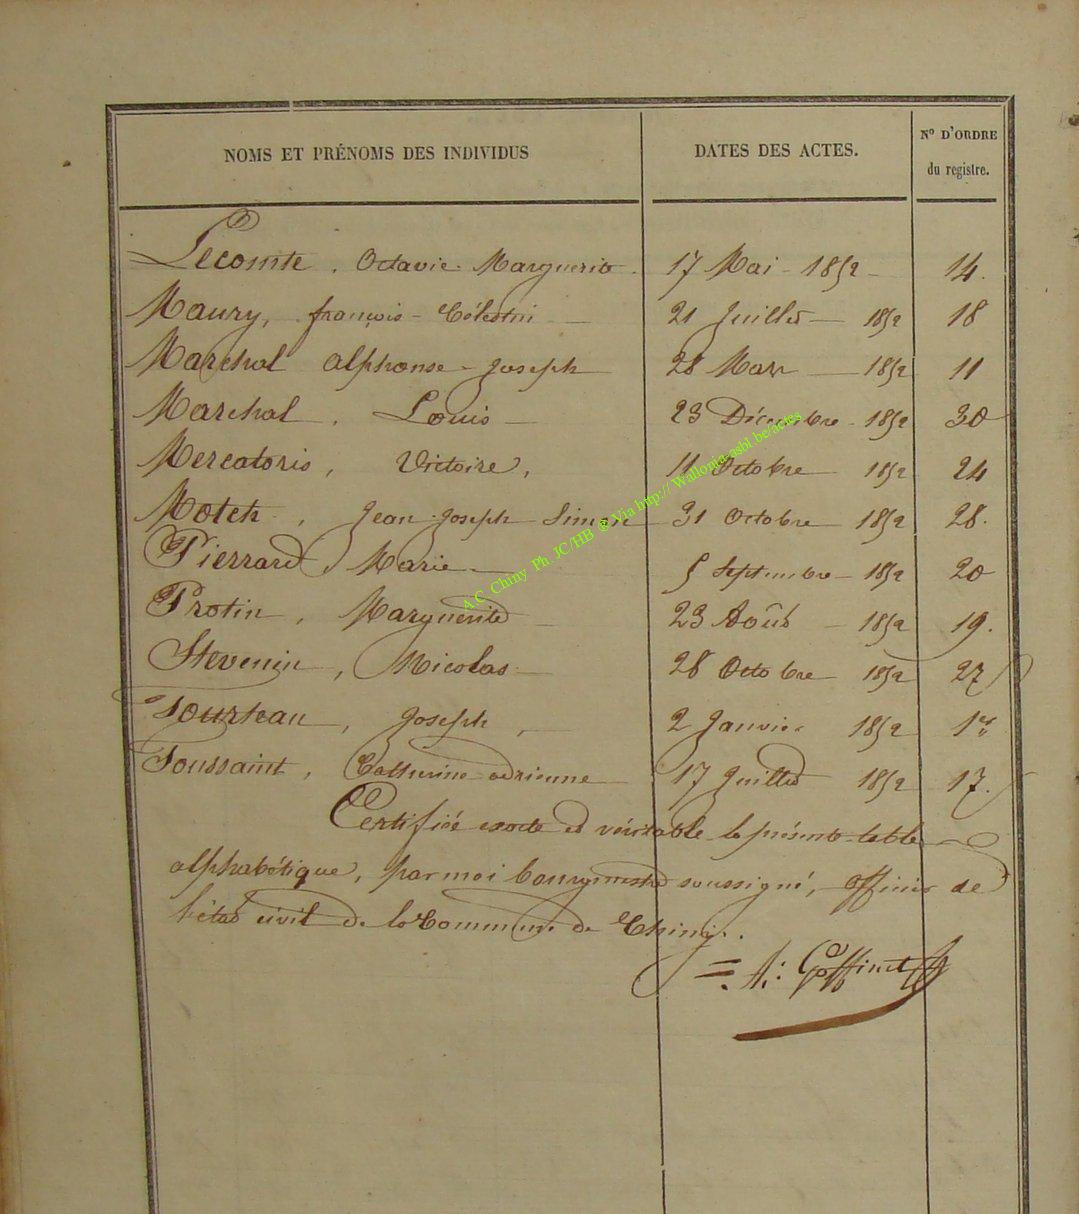 NOMS ET PRÉNOMS DES INDIVIDUS DATES DES ACTES. N° D'ORDRE
du registre.
Lecomte, Octavie Marguerite 17 Mai 1852 14.
Maury, françois Célestin 21 Juillet 1852 18
Marchal alphonse Joseph 28 Mars 1852 11
Marchal, Louis 23 Décembre 1852 30
Mercatoris, Victoire, 11 Octobre 1852 24
Motch, Jean Joseph Simon 31 Octobre 1852 28.
Pierrard, Marie 5 Septembre 1852 20
Protin, Marguerite 23 Août 1852 19.
Stevenin, Nicolas 28 Octobre 1852 27
Tourteau, Joseph, 2 Janvier 1852 1er
Toussaint, Catherine adrienne 17 Juillet 1852 17.
Certifiée exacte et véritable la présente table
alphabétique, par moi bourgmestre soussigné, officier de
l'état civil de la Commune de Chiny.
Goffinet
A.C. Chiny Ph. JC/HB @ Via http:// Wallonia-asbl.be/actes